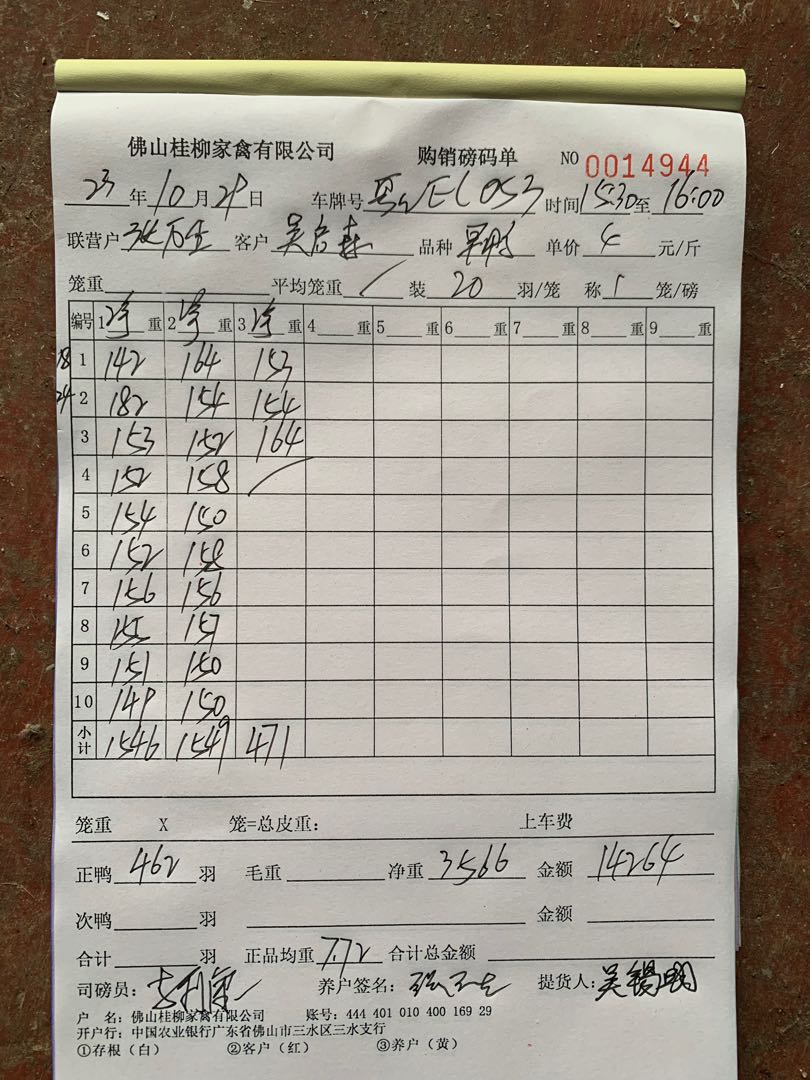 佛山桂柳家禽有限公司 购销磅码单 NO 0014944
23 年 10 月 29 日 车牌号 EL053 时间 15:30 至 16:00
联营户 张万生 客户 吴启森 品种 单价 4 元/斤
笼重 平均笼重 / 装 20 羽/笼 称 1 笼/磅
编号 1 净 重 2 净 重 3 净 重 4 重 5 重 6 重 7 重 8 重 9 重
18 1 142 164 153
24 2 182 154 154
3 153 152 164
4 152 158 /
5 154 150
6 152 158
7 156 156
8 155 157
9 151 150
10 149 150
小计 1546 1549 471
笼重 X 笼=总皮重: 上车费
正鸭 462 羽 毛重 净重 3566 金额 14264
次鸭 羽 金额
合计 羽 正品均重 7.72 合计总金额
司磅员: 养户签名: 张万生 提货人: 吴锡明
户 名: 佛山桂柳家禽有限公司 账号: 444 401 010 400 169 29
开户行: 中国农业银行广东省佛山市三水区三水支行
①存根（白） ②客户（红） ③养户（黄）